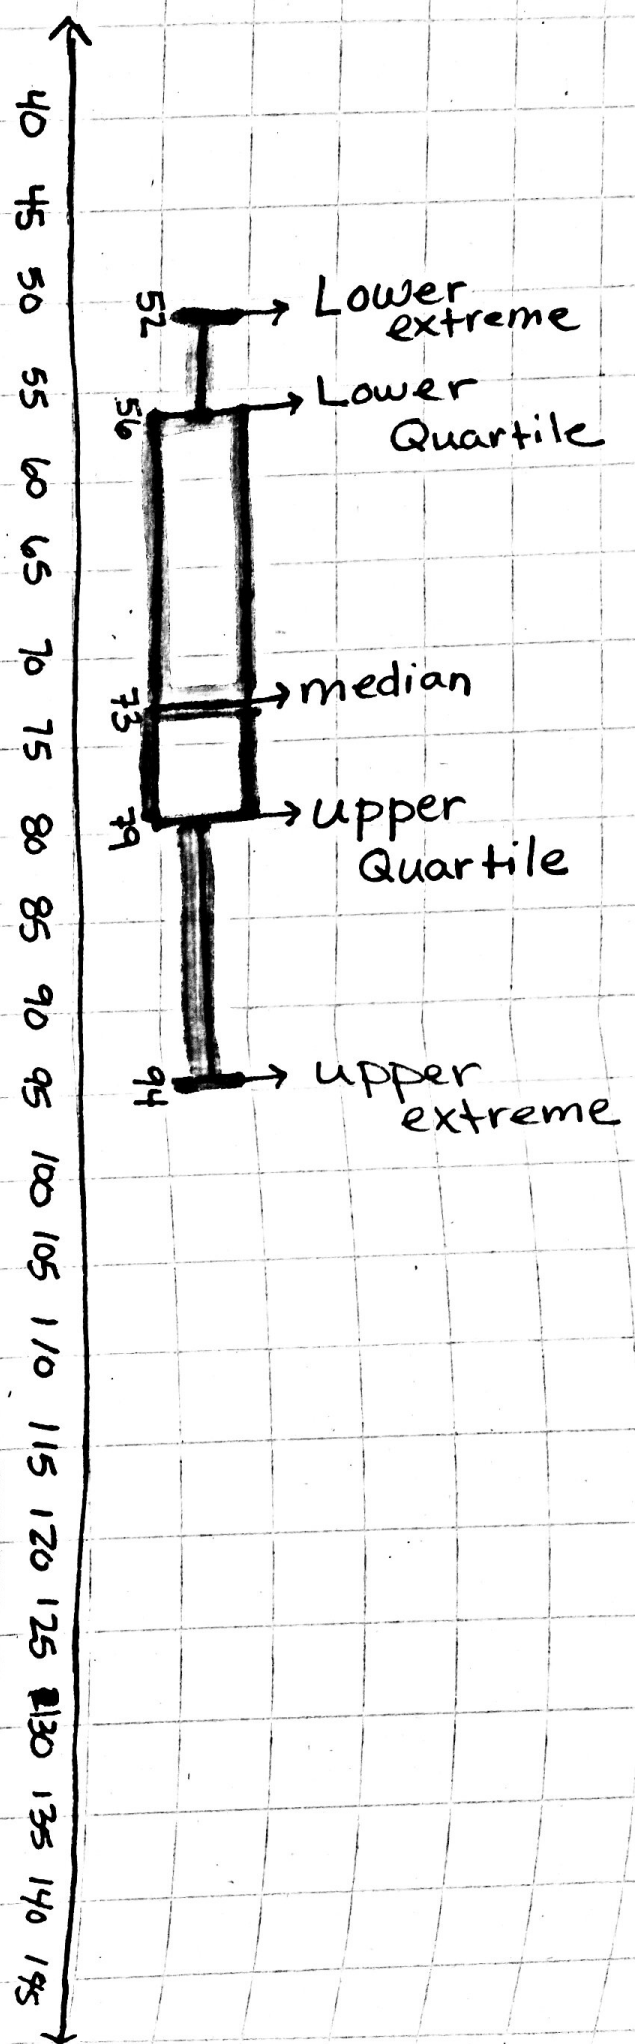 40 45 50 55 60 65 70 75 80 85 90 95 100 105 110 115 120 125 130 135 140 145
52
Lower
extreme
56
Lower
Quartile
73
median
79
upper
Quartile
94
upper
extreme